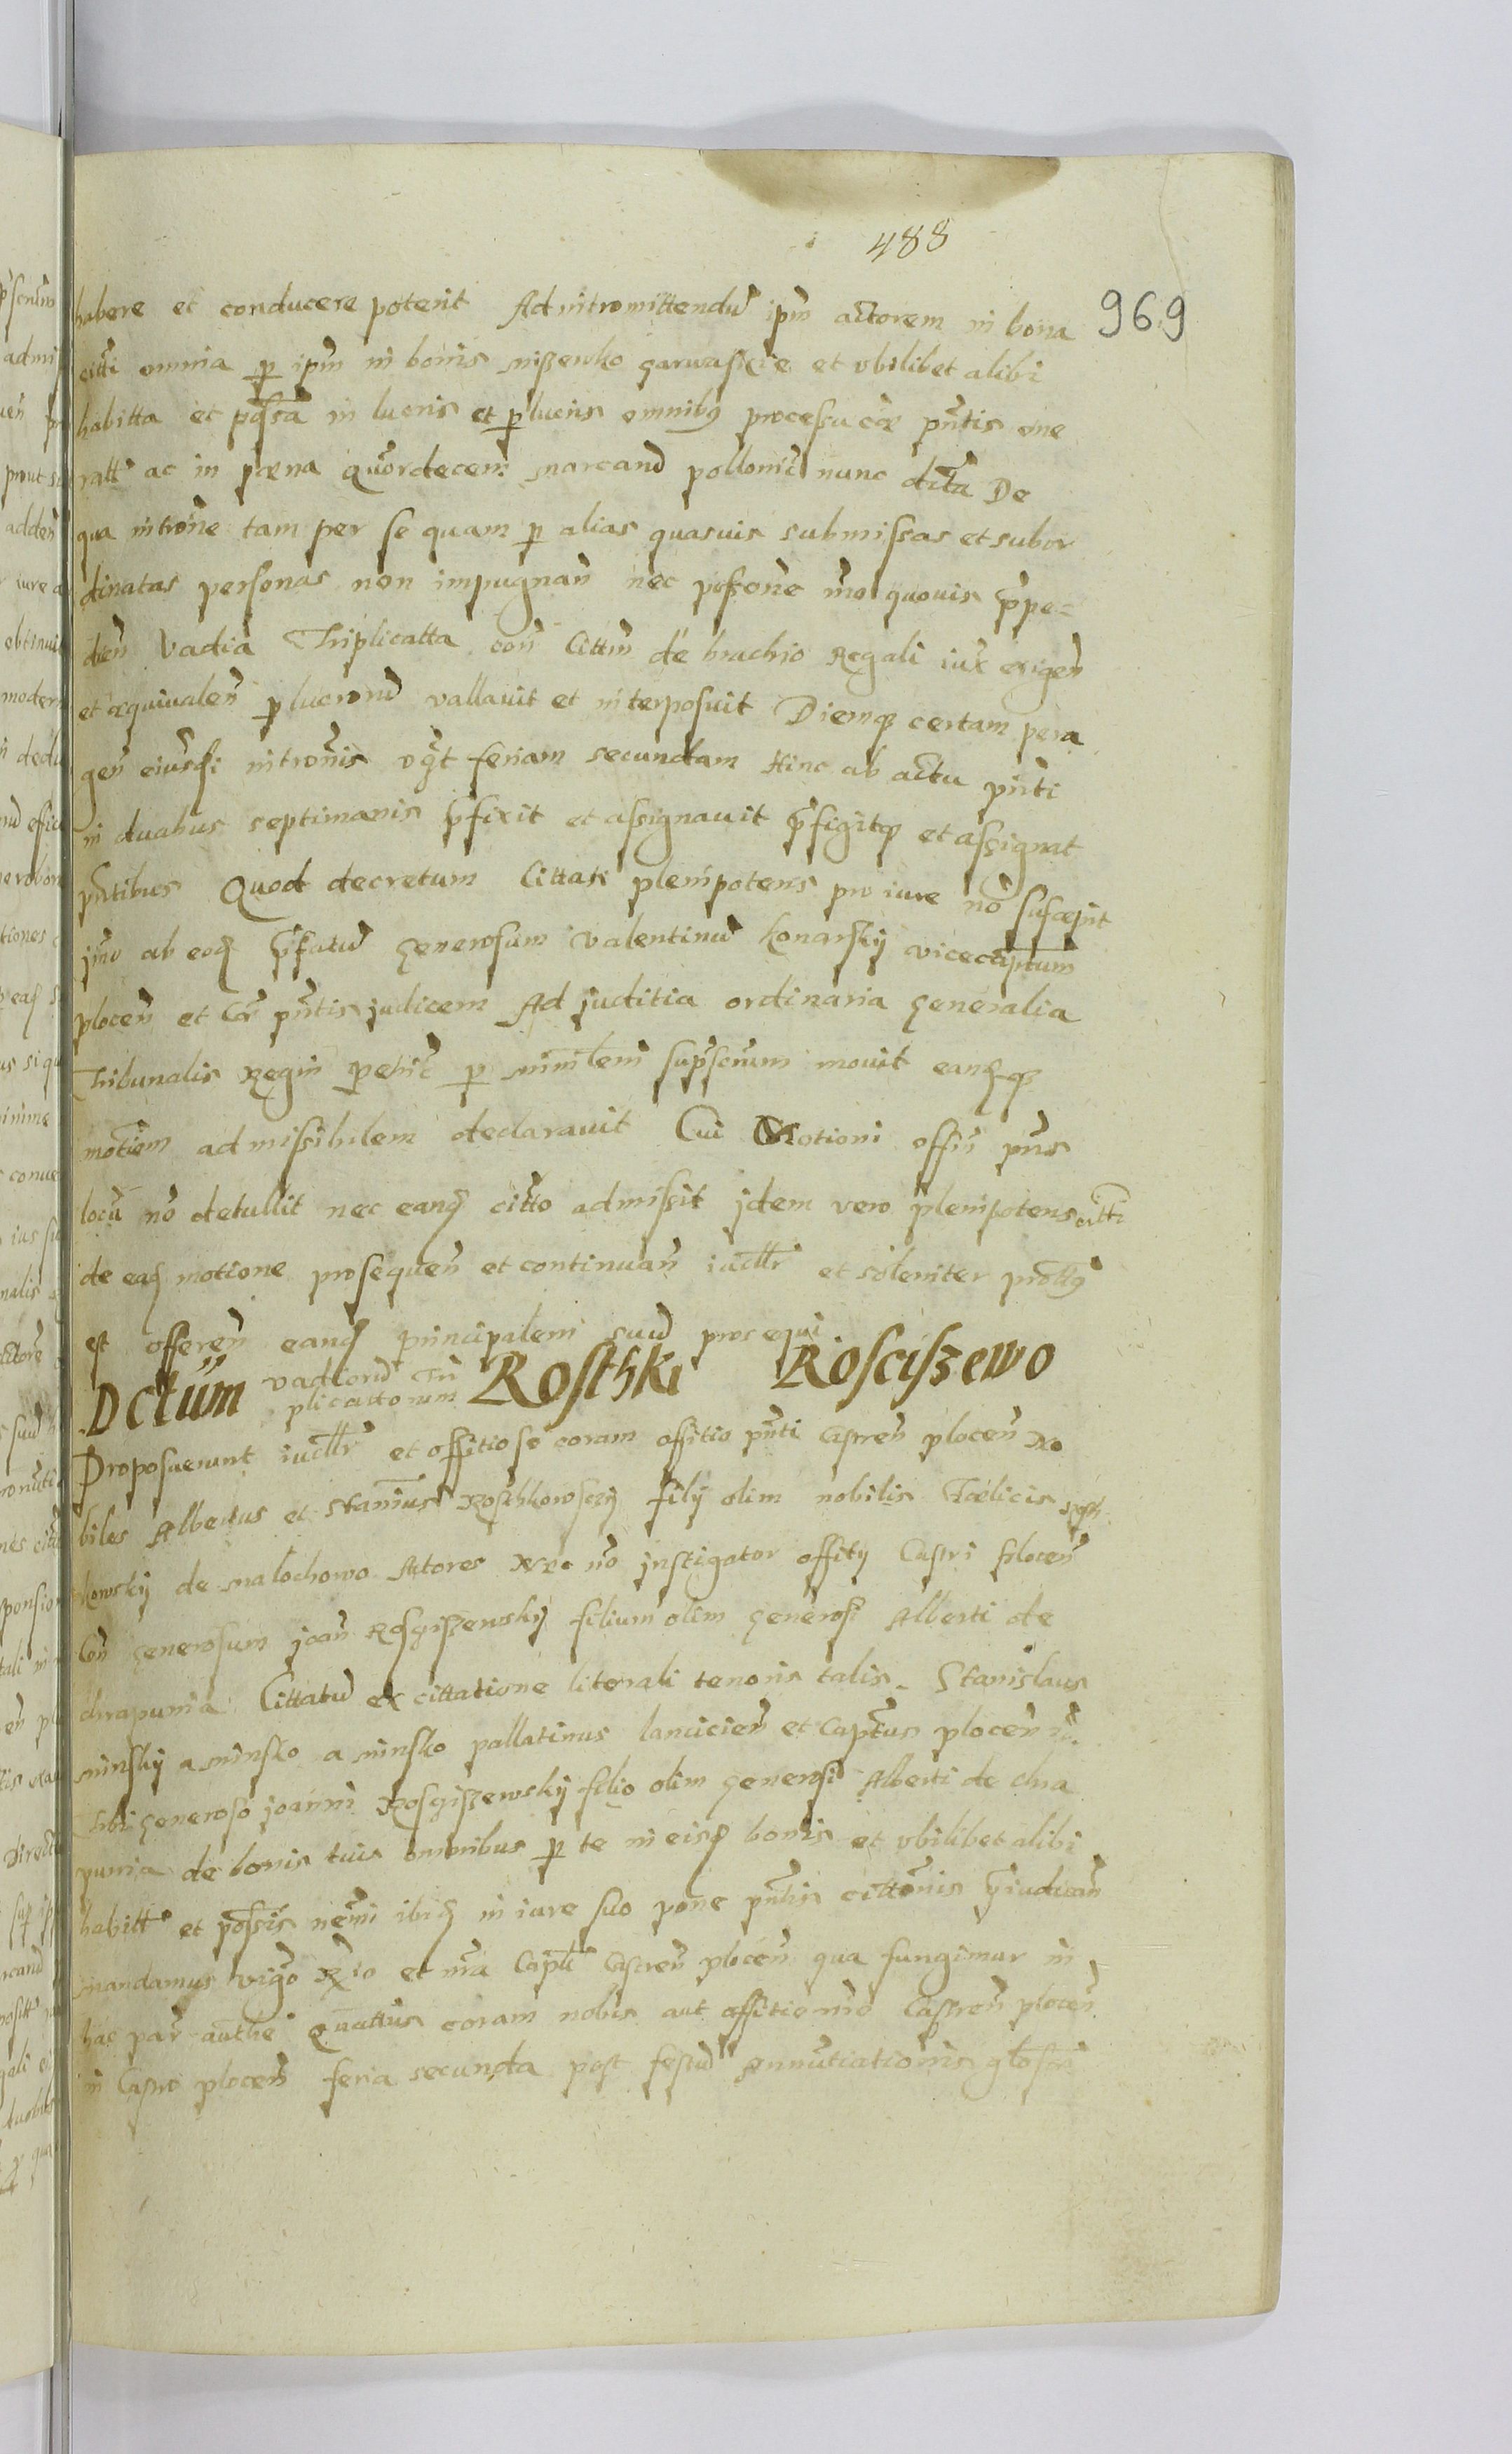 488
969
habere et conducere poterit Ad intromittendu ipm actorem in bona
citti omnia p ipm in bonis et vbilibet alibi
habitta et in lucris et plucris omnibq processu cae pntis one
ratt ac in paena quordecem marcand pollonic nunc dicta De
qua introne tam per se quam p alias quasuis submissas et subor
dinatas personas non impugnan nec mo quouis
dien Vadia Triplicatta con Cittm de brachio Regali iux exigen
et aequiualen plucrord vallauit et interposuit Diemq certam pera
gen eiusdi intronis feriam secundam Hinc ab actu pnti
in duabus septimanis pfixit et assignauit pfigitq et assignat
pntibus Quod decretum Cittati plenipotens pro iure no suscepit
jmo ab eod pfatu generosum Valentinu Konarskij vicecaptum
plocen et Cae pntis judicem Ad juditia ordinaria generalia
Tribunalis Regni petric p supscrum mouit eandq
motiem admissibilem declarauit Cui Motioni offii pns
locu no detullit nec eand citto admissit jdem vero plenipotens citti
de ead motione prosequen et continuan iudllr et soleniter
est offeren eand principalem suu prosequi
Dctum vadiord Tri
plicattorum Rosthki Rosciszewo
Proposuerunt iudllr et offitiose coram offitio pnti Castren plocen No
biles Albertus et Stanius filij olim nobilis Faelicis
kowskij de malochowo Actores Nec no jnstigator offity Castri plocen
Con generosum joan Rosciszewskij filium olim generosi Alberti de
chrapunia Cittatu ex cittatione literali tenoris talis Stanislaus
minskij a minsko a minsko pallatinus lanicien et Captus plocen
Tibi generoso joanni Rosciszewskij filio olim generosi Alberti de chra
punia de bonis tuis omnibus p te in eisd bonis et vbilibet alibi
habitt et possis ibid in iure suo pntis cittonis
mandamus vigo et Castren plocen qua fungimur in
hac par authe quattus coram nobis aut offitio nro Castren plocen
in Castro plocen feria secunda post festu Annutiationis